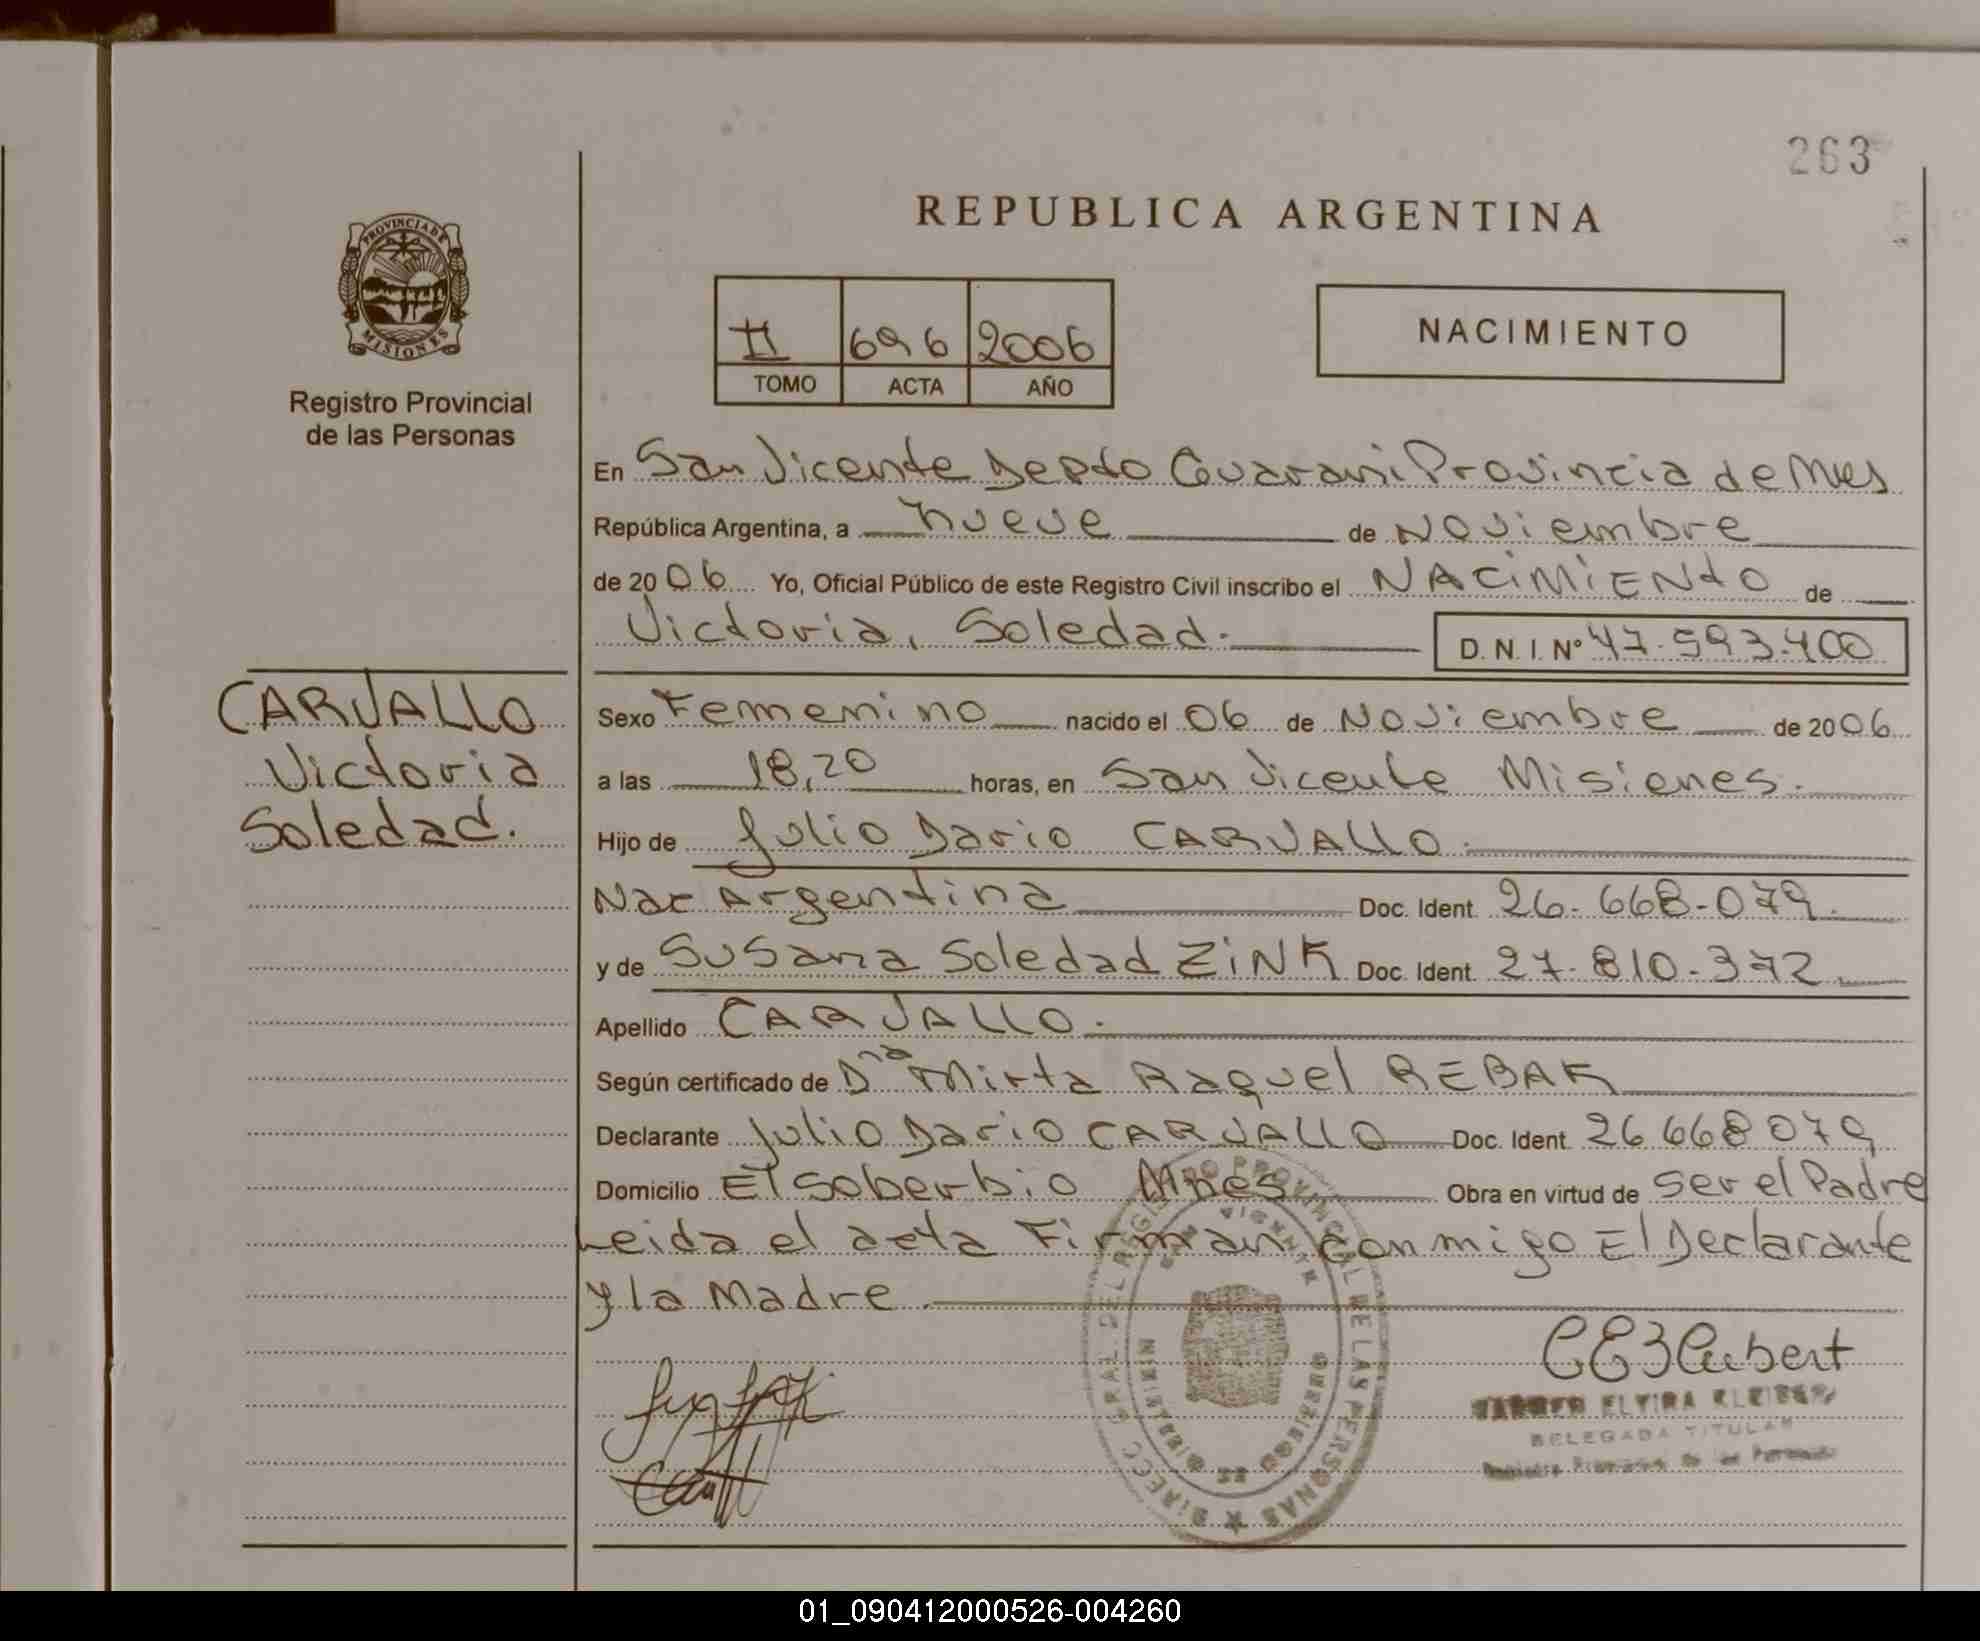 263
REPUBLICA ARGENTINA
PROVINCIA DE
MISIONES
Registro Provincial
de las Personas
II 696 2006
TOMO ACTA AÑO
NACIMIENTO
En San Vicente Depto Guarani Provincia de Mnes
República Argentina, a nueve de Noviembre
de 2006 Yo, Oficial Público de este Registro Civil inscribo el NACiMiENtO de
Victoria, Soledad.
D.N.I. Nº 47.593.400
CARVALLO
Victoria
Soledad.
Sexo Femenino nacido el 06 de Noviembre de 2006
a las 18,20 horas, en San Vicente Misiones.
Hijo de Julio Dario CARVALLO.
Nac Argentina Doc. Ident. 26.668.079.
y de Susana Soledad ZiNK Doc. Ident. 27.810.372
Apellido CARVALLO.
Según certificado de Dña Mirta Raquel REBAK
Declarante Julio Dario CARVALLO Doc. Ident. 26668079
Domicilio El Soberbio Mnes Obra en virtud de ser el Padre
Leida el acta Firman conmigo El Declarante
y la Madre.
DIRECC. GRAL. DEL REGISTRO PROVINCIAL DE LAS PERSONAS
ELVIRA
DELEGADA TITULAR
01_090412000526-004260